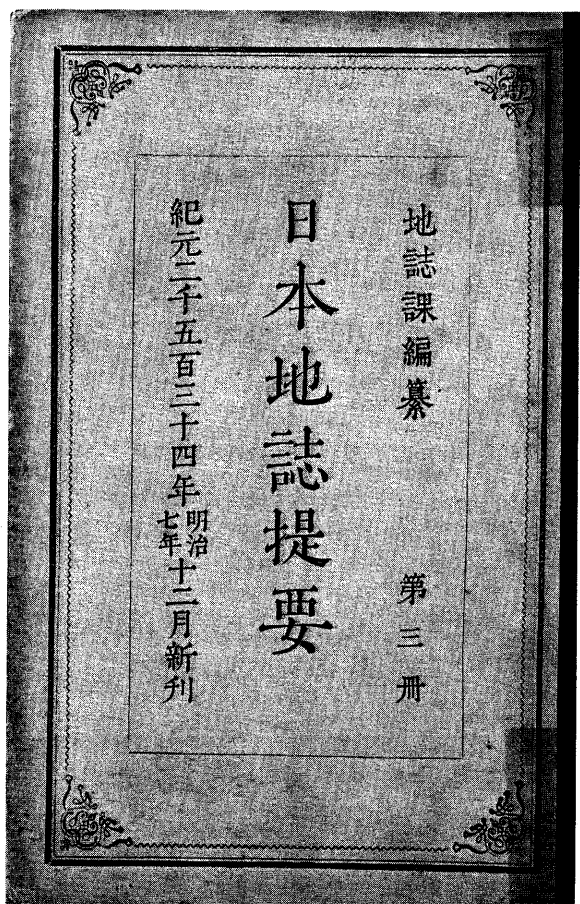 地誌課編纂 第三冊
日本地誌提要
紀元二千五百三十四年明治七年十二月新刊